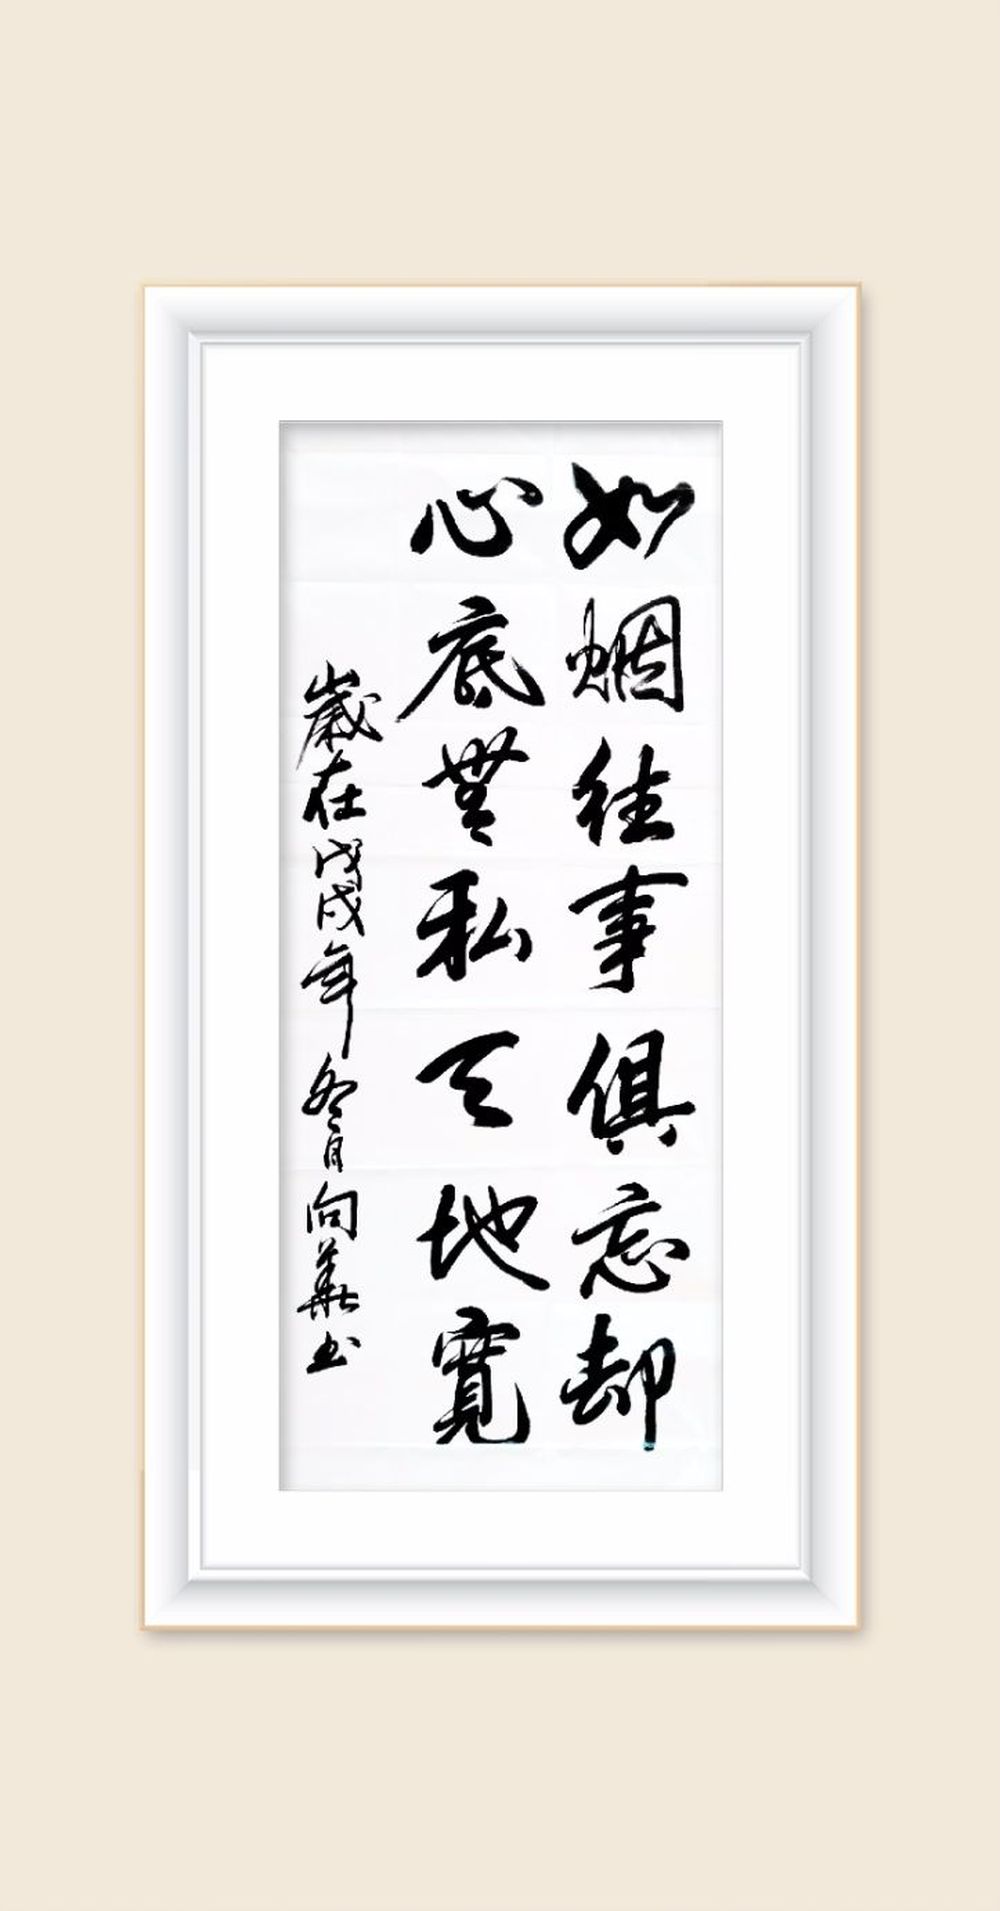 如烟往事俱忘却
心底無私天地寬
歲在戊戌年冬月向華书